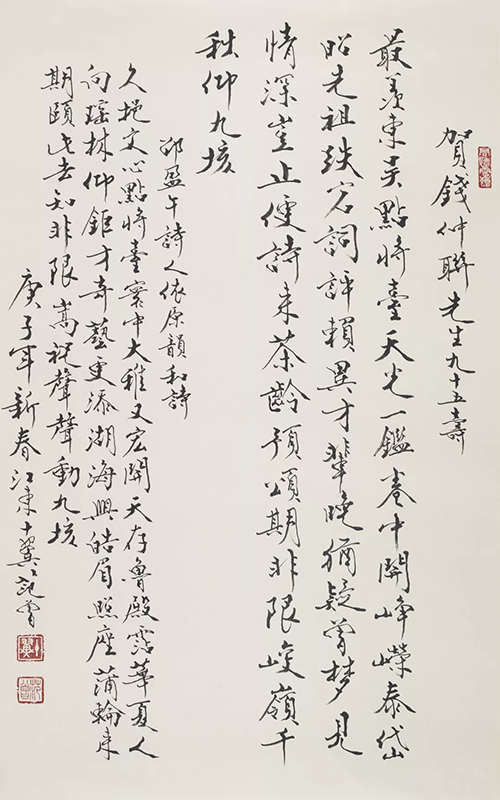 賀錢仲聯先生九十五壽
最羨東吳點將臺天光一鑑卷中開崢嶸泰岱
昭先祖跌宕詞評賴異才輩晚猶疑曾夢見
情深豈止使詩来茶齡預頌期非限峻嶺千
秋仰九垓
邵盈午詩人依原韻和詩
久挹文心點將臺寰中大雅又宏開天存魯殿霑華夏人
向瑤林仰鉅才奇藝更添湖海興皓眉照座蒲輪来
期頤此去知非限嵩祝聲聲動九垓
庚子年新春江東十翼范曾
十翼
范曾